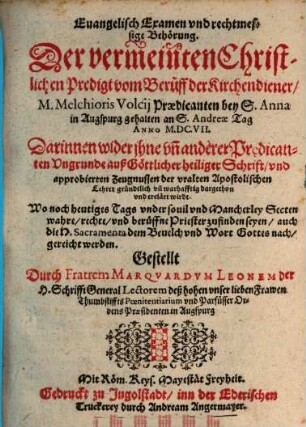 Euangelisch Examen vnd rechtmes-
sige Behörung.
Der vermeinten Christ-
lichen Predigt vom Berüff der Kirchendiener/
M. Melchioris Volcij Prædicanten bey S. Anna
in Augspurg gehalten an S. Andreæ Tag
ANNO M.DC.VII.
Darinnen wider jhne vñ anderer Prædican-
ten Vngrunde auß Göttlicher heiliger Schrifft/vnd
approbierten Zeugnussen der vralten Apostolischen
Lehrer gründtlich vñ warhafftig dargethon
vnd erklärt wirdt.
Wo noch heutiges Tags vnder souil vnd Mancherley Secten
wahre/ rechte/ vnd berüffne Priester zufinden seyen/ auch
die H. Sacramenta dem Beuelch vnd Wort Gottes nach/
gereicht werden.
Gestellt
Durch Fratrem MARQVARDVM LEONEM der
H. Schrifft General Lectorem deß hohen vnser lieben Frawen
Thumbstiffts Pœnitentiarium vnd Parfüsser Or-
dens Præsidenten in Augspurg
Mit Röm. Keys. Mayestät Freyheit.
Gedruckt zu Ingolstadt/ inn der Ederischen
Truckerey durch Andream Angermayer.